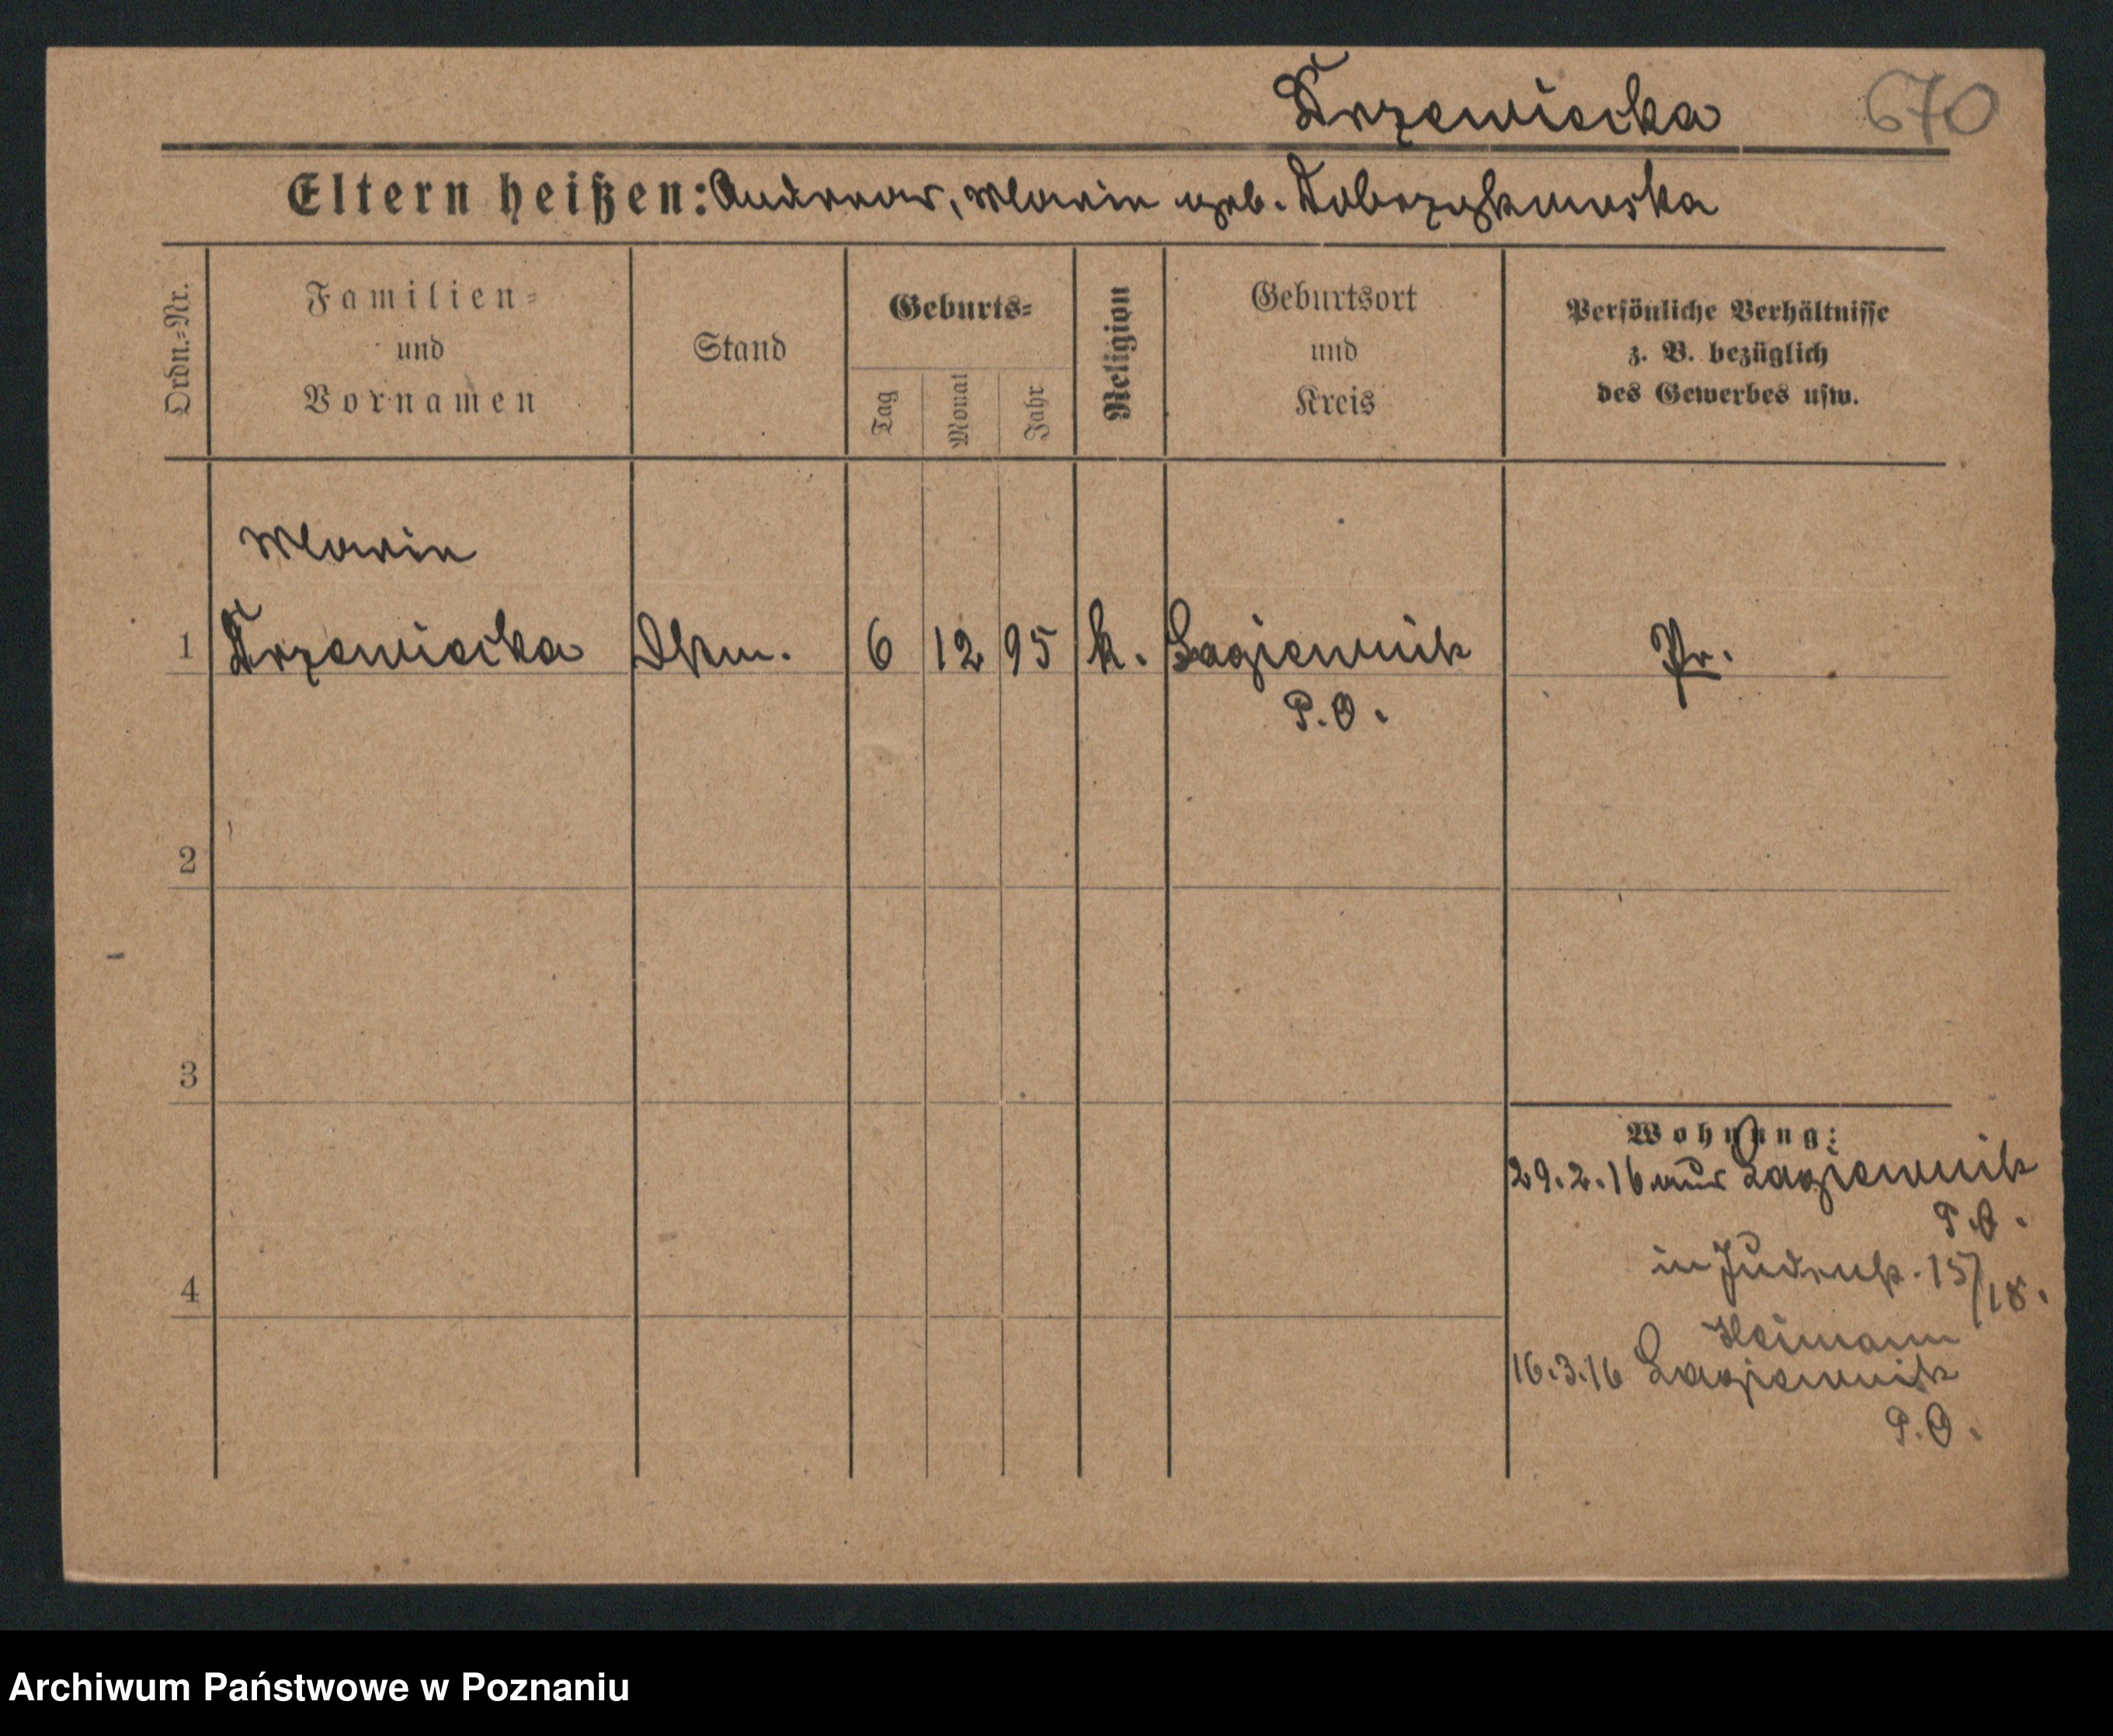 Drzewiecka 670
Eltern heißen: Andreas, Maria geb. Dobrzykowska
Ordn.-Nr.
Familien-
und
Vornamen
Stand
Geburts-
Tag
Monat
Jahr
Religion
Geburtsort
und
Kreis
Persönliche Verhältnisse
z. B. bezüglich
des Gewerbes usw.
Maria
1 Drzewiecka 6 12 95 k. Lagiewnik Pr.
P.O.
2
3
4
Wohnung:
29.2.16 aus Lagiewnik
P.O.
in Judenstr. 15/18.
Heimann
16.3.16 Lagiewnik
P.O.
Archiwum Państwowe w Poznaniu